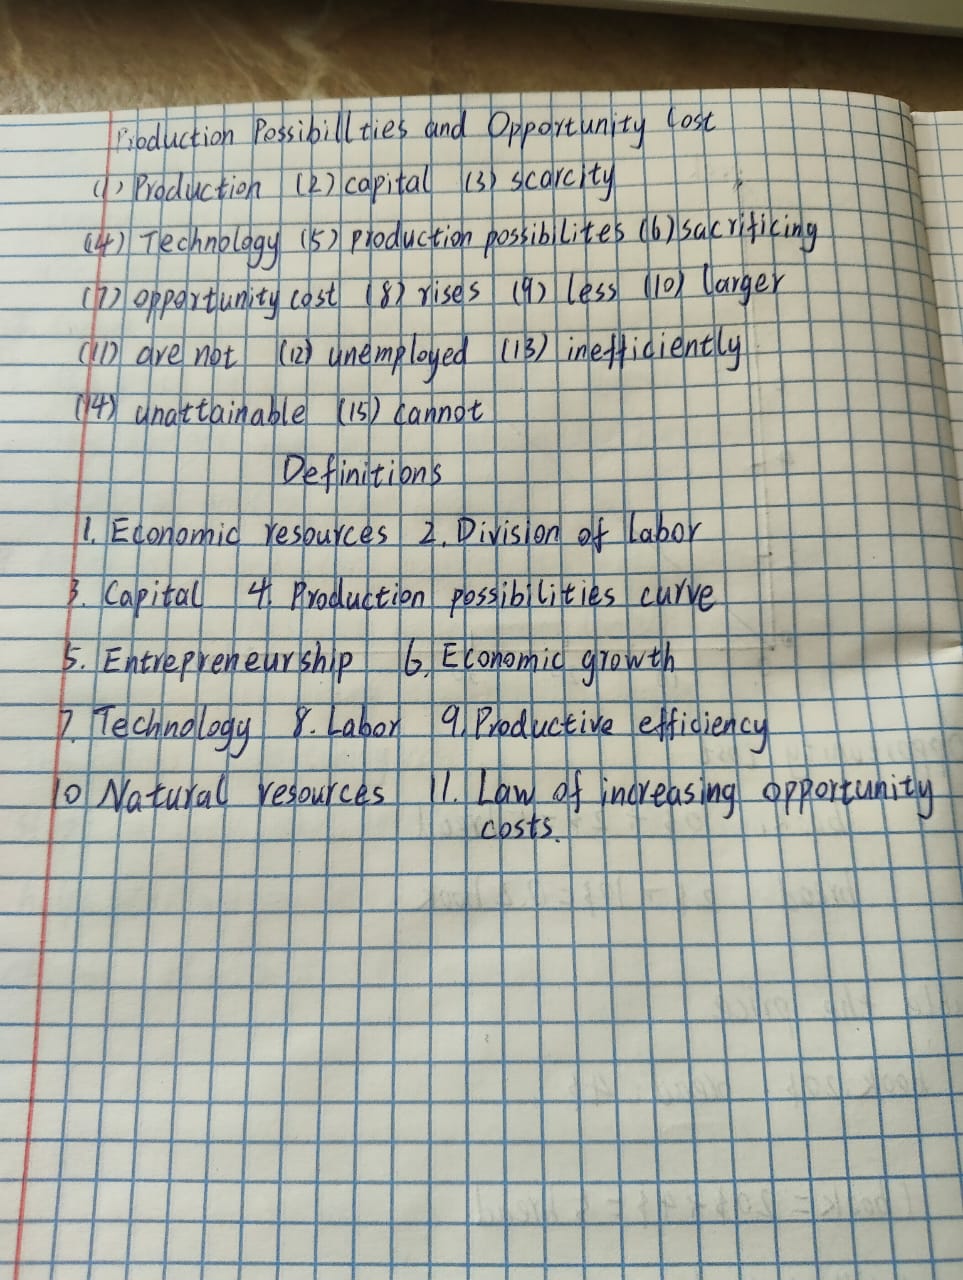 Production Possibillties and Opportunity Cost
(1) Production (2) capital (3) scarcity
(4) Technology (5) production possibilites (6) sacrificing
(7) opportunity cost (8) rises (9) less (10) larger
(11) are not (12) unemployed (13) inefficiently
(14) unattainable (15) cannot
Definitions
1. Economic resources 2. Division of labor
3. Capital 4. Production possibilities curve
5. Entrepreneurship 6. Economic growth
7. Technology 8. Labor 9. Productive efficiency
10 Natural resources 11. Law of increasing opportunity
costs.